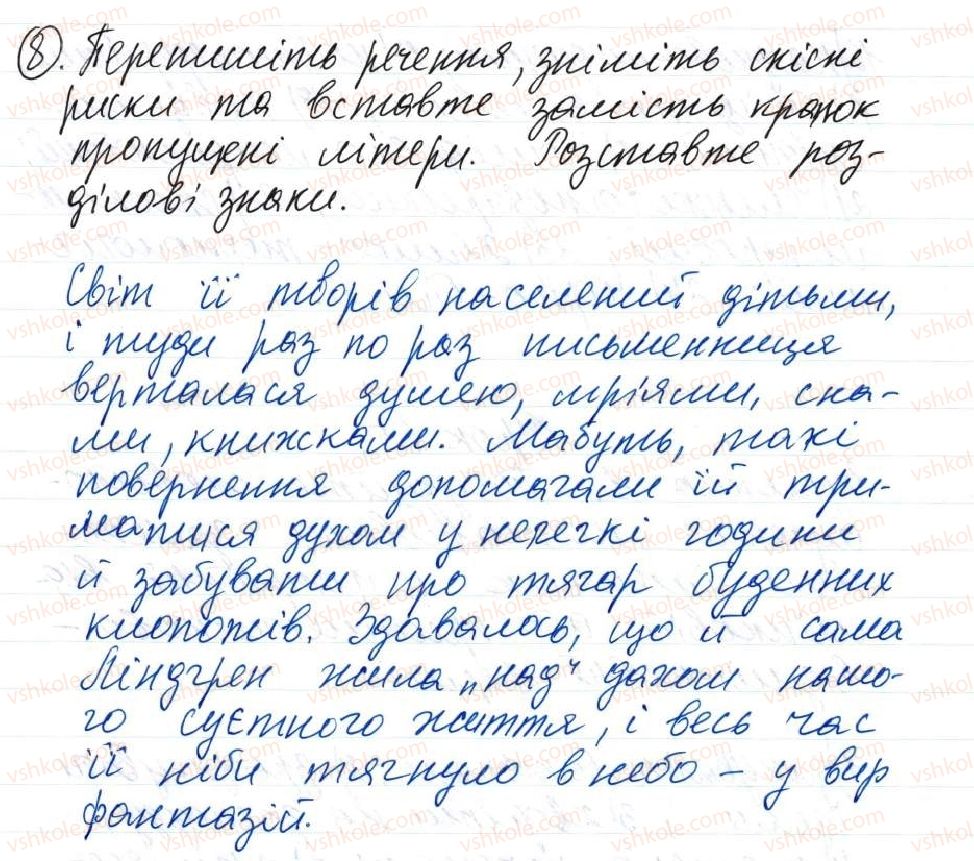 8. Перепишіть речення, зніміть скісні
риски та вставте замість крапок
пропущені літери. Розставте роз-
ділові знаки.
Світ її творів населений дітьми,
і туди раз по раз письменниця
верталася душею, мріями, сна-
ми, книжками. Мабуть, такі
повернення допомагали їй три-
матися духом у нелегкі години
й забувати про тягар буденних
клопотів. Здавалось, що й сама
Ліндгрен жила „над“ дахом нашо-
го суєтного життя, і весь час
її ніби тягнуло в небо – у вир
фантазій.